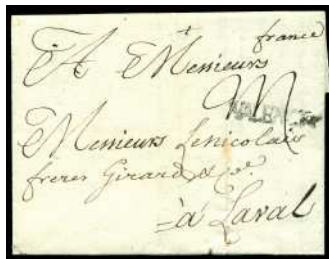 france
A Messieurs
Messieurs Lenicolais
freres Girard & Ce.
à Laval